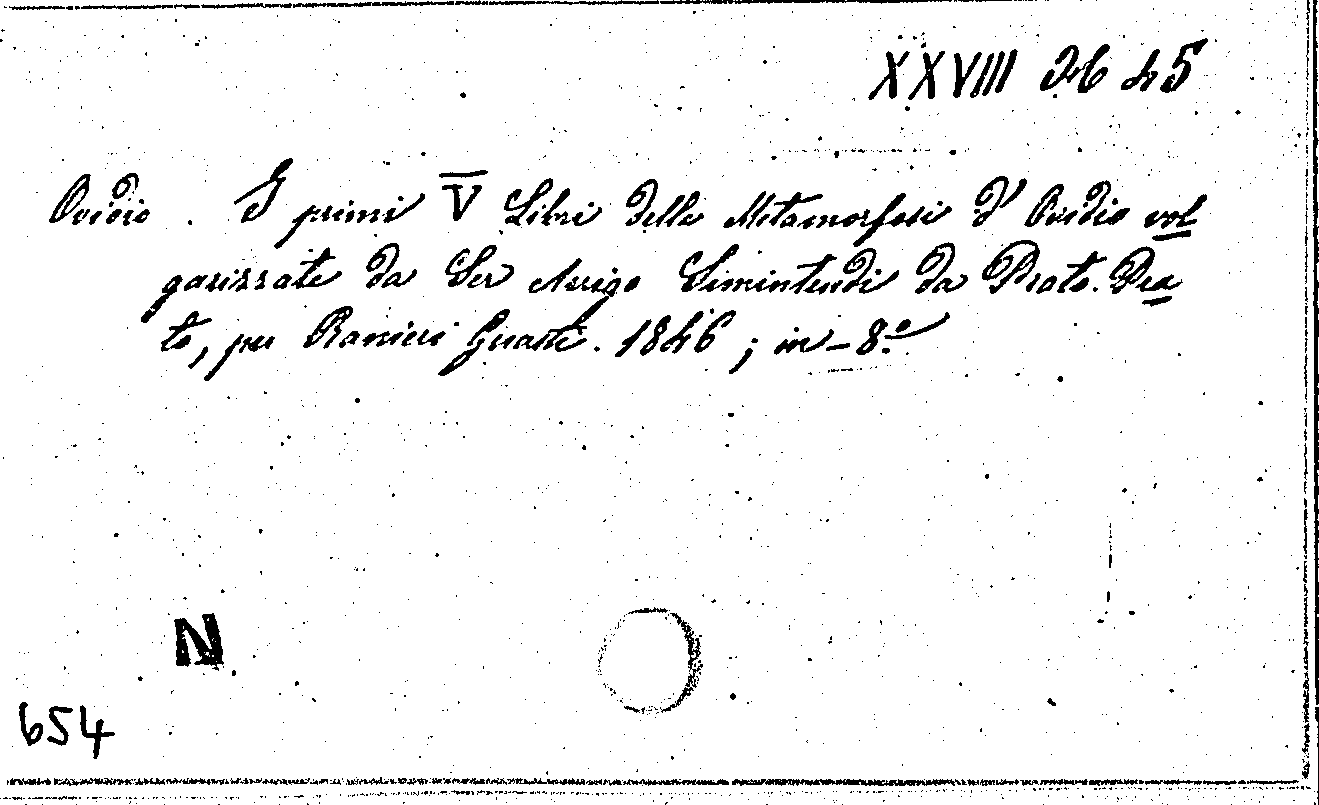 XXVIII 26 45
Ovidio . I primi V Libri delle Metamorfosi d' Ovidio vol
garizzate da Ser Arrigo Simintendi da Prato. Pra
to, per Ranieri Guasti. 1846 ; in-8.º
N
654